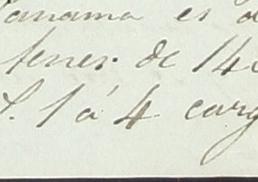 anama es
tener de 14
S. 1 á 4 carg